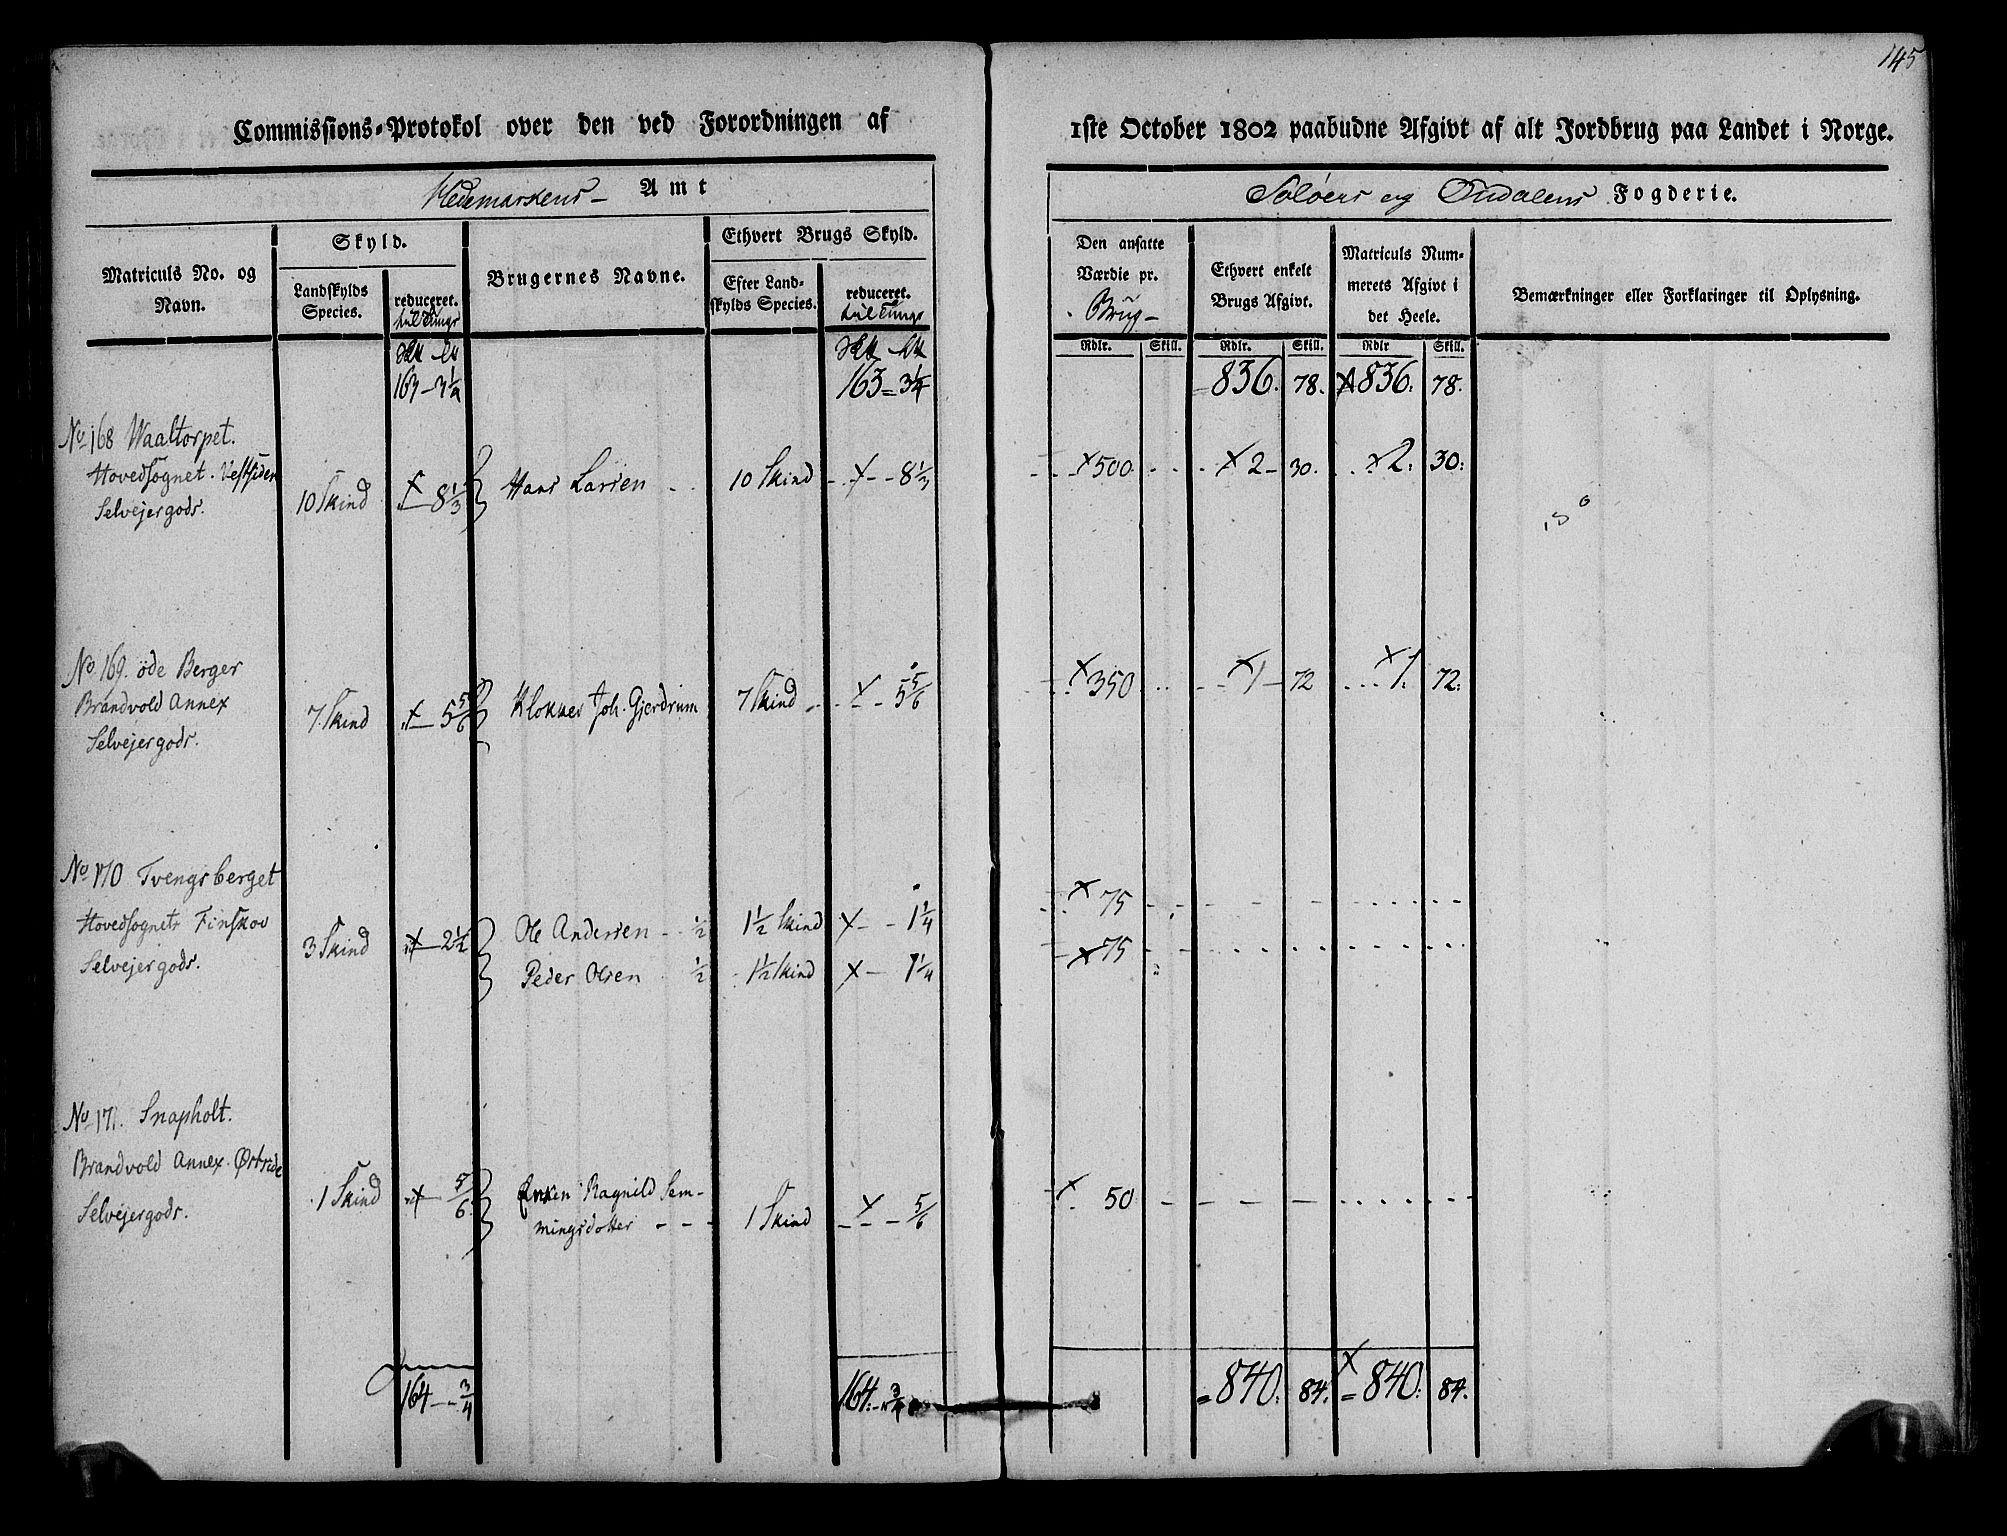 145
Commissions-Protokol over den ved Forordningen af 1ste October 1802 paabudne Afgivt af alt Jordbrug paa Landet i Norge.
Hedemarkens Amt
Soløers og Oudalens Fogderie.
Matriculs No. og Navn.
Skyld.
Landskylds Species.
reduceret. til Tunge
Brugernes Navne.
Ethvert Brugs Skyld.
Efter Landskylds Species.
reduceret. til Tunge
Den ansatte Værdie pr. Brug
Ethvert enkelt Brugs Afgivt.
Matriculs Nummerets Afgivt i det Heele.
Bemærkninger eller Forklaringer til Oplysning.
Rdlr. Skill. Rdlr. Skill. Rdlr Skill.
163 - 3 1/4 163 = 3 1/4 836. 78. 836. 78.
No 168 Waaltorpet.
Hovedsognet. Vestsiden
Selvejergods.
10 Skind 8 1/3 Hans Larsen 10 Skind 8 1/3 500 2 - 30. 2. 30:
No 169. öde Berger
Brandvold Annex
Selvejergods.
7 Skind 5 5/6 Klokker Joh. Gjerdrum 7 Skind 5 5/6 350 1 - 72 1. 72:
No 170 Tvengsberget
Hovedsognets Finskov
Selvejergods.
3 Skind 2 1/2 Ole Andersen 1/2 1 1/2 Skind 1 1/4 75
Peder Olsen 1/2 1 1/2 Skind 1 1/4 75
No 171. Snapholt.
Brandvold Annex Østside
Selvejergods.
1 Skind 5/6 Enken Ragnild Sem-
mingsdotter 1 Skind 5/6 50
164 - 3/4 164. - 3/4 840. 84. 840. 84.